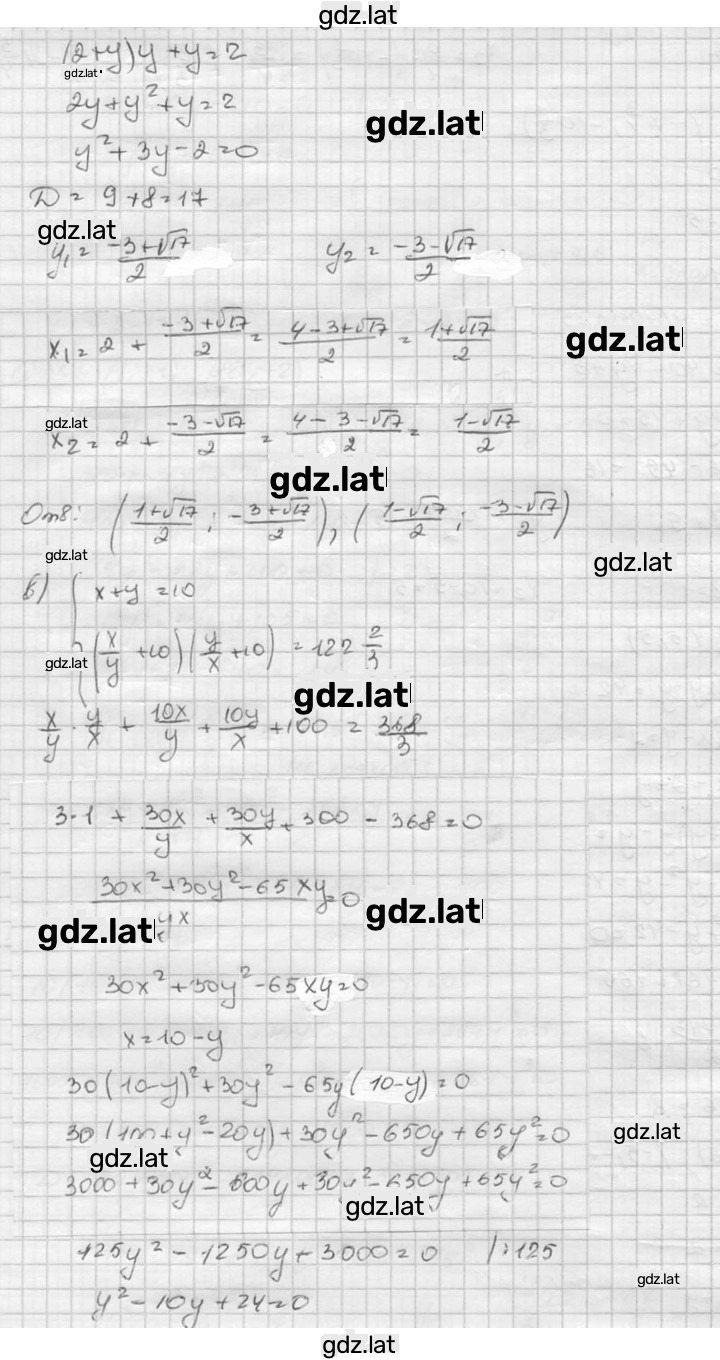 gdz.lat
(2+y)y+y=2
gdz.lat
2y+y²+y=2
gdz.lat
y²+3y-2=0
D = 9+8=17
gdz.lat
y₁ = (-3+√17)/2 y₂ = (-3-√17)/2
x₁ = 2 + (-3+√17)/2 = (4-3+√17)/2 = (1+√17)/2
gdz.lat
gdz.lat
x₂ = 2 + (-3-√17)/2 = (4-3-√17)/2 = (1-√17)/2
gdz.lat
Отв: ((1+√17)/2 ; (-3+√17)/2), ((1-√17)/2 ; (-3-√17)/2)
gdz.lat
gdz.lat
в) { x+y=10
(x/y +10)(y/x +10) = 122 2/3
gdz.lat
gdz.lat
x/y · y/x + 10x/y + 10y/x +100 = 368/3
3·1 + 30x/y + 30y/x + 300 - 368=0
(30x²+30y²-65xy)/yx=0
gdz.lat
gdz.lat
30x²+30y²-65xy=0
x=10-y
30(10-y)²+30y²-65y(10-y)=0
30(100+y²-20y)+30y²-650y+65y²=0
gdz.lat
gdz.lat
3000+30y²-600y+30y²-650y+65y²=0
gdz.lat
125y²-1250y+3000=0 |:125
gdz.lat
y²-10y+24=0
gdz.lat